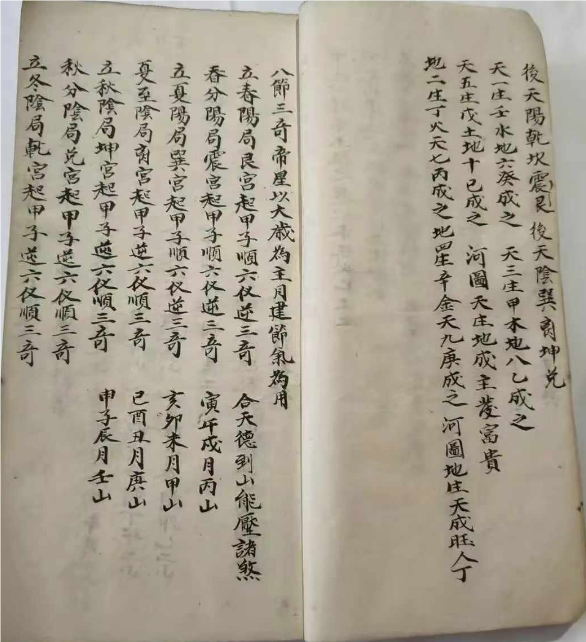 後天陽乾坎震艮 後天陰巽离坤兌
天一生壬水地六癸成之 天三生甲木地八乙成之
天五生戊土地十己成之 河圖天生地成主發富貴
地二生丁火天七丙成之 地四生辛金天九庚成之 河圖地生天成旺人丁
八節三奇帝星以大歲為主月建節氣為用
立春陽局艮宮起甲子順六仪逆三奇 合天德到山能壓諸煞
春分陽局震宮起甲子順六仪逆三奇 寅午戌月丙山
立夏陽局巽宮起甲子順六仪逆三奇 亥卯未月甲山
夏至陰局离宮起甲子逆六仪順三奇 巳酉丑月庚山
立秋陰局坤宮起甲子逆六仪順三奇 申子辰月壬山
秋分陰局兌宮起甲子逆六仪順三奇
立冬陰局乾宮起甲子逆六仪順三奇